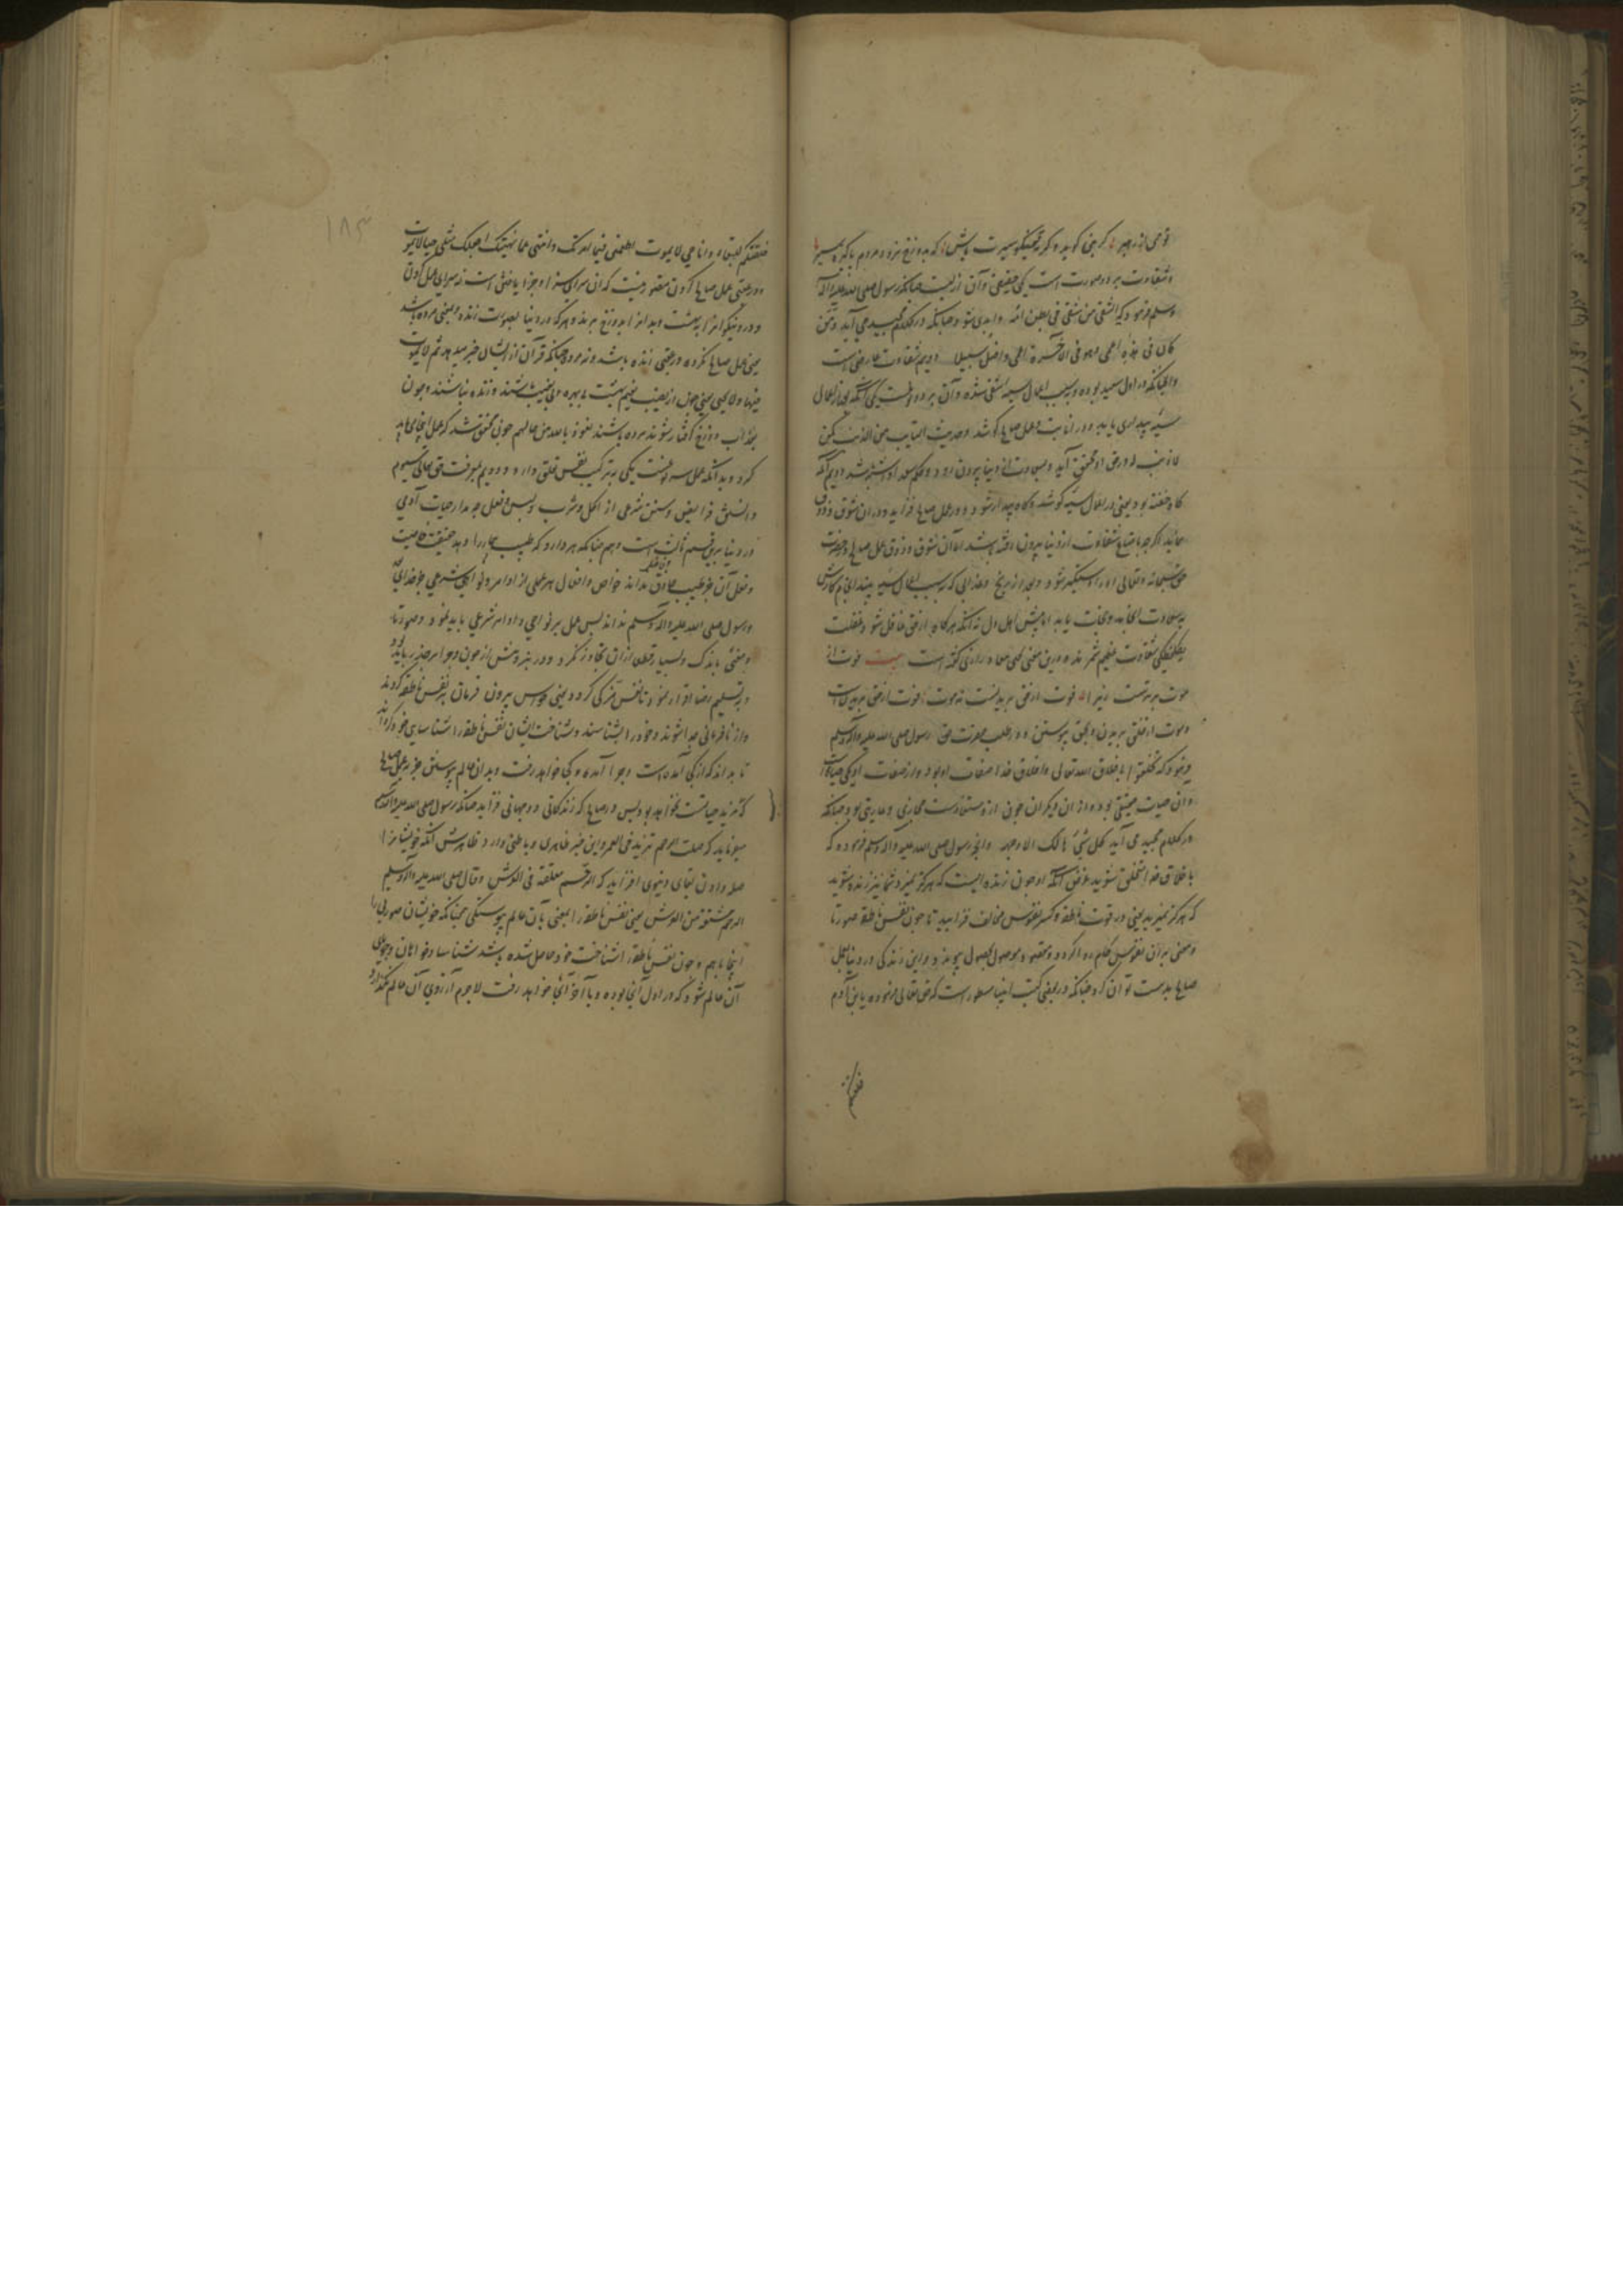 وشقاوت بر دو صورت است یکی حقیقی وآن ازلیست چنانکه رسول صلی الله علیه وآله
وسلم فرمود که الشقی من شقی فی بطن امه و ابدی شود چنانکه در کلام مجید می آید ومن
کان فی هذه اعمی وهو فی الآخرة اعمی واضل سبیلا دویم شقاوت عارضی است
سیئه بیداری یابد و در انابت وعمل صالح کوشد وحدیث التایب من الذنب کمن
لا ذنب له در حق او محقق آید وبسعادت از دنیا بیرون رود
کاه خفته بود یعنی در اعمال سیئه کوشد وکاه بیدار شود و در عمل صالح فزاید ودران شوق وذوق
نماید اگرچه با متاع شقاوت از دنیا بیرون رفته باشد اما آن شوق وذوق عمل صالح وحضرت
حق سبحانه وتعالی او را دستگیر شود وبعد از برزخ وعذابی که بسبب اعمال سیئه بیند انجام کارش
بسعادت انجامد ونجات یابد اما پیش اهل دل تا آنکه هرگاه از حق غافل شود وغفلت
شقاوت عظیم شمرند و درین معنی یحیی معاذ رازی گفته است بیت فوت از
موت بدترست زیرا که فوت از حق بریدنست نه موت فوت از حق بریدن است
وموت از خلق بریدن وبحق پیوستن و در طلب معرفت حق رسول صلی الله علیه وآله وسلم
فرمود که تخلقوا باخلاق الله تعالی واخلاق خدا صفات او بود واز صفات او یکی حیات
وآن حیات حقیقی بود واز آن دیگران چون از و مستفادست مجازی وعاریتی بود چنانکه
در کلام مجید می آید کل شیئ هالک الا وجهه وانچه رسول صلی الله علیه وآله وسلم فرموده که
باخلاق خدا متخلق شوید غرض آنکه او چون زنده ایست که هرگز نمیرد شما نیز زنده شوید
که هرگز نمیرید یعنی در قوت ناطقه وکسر نفوس مخالف فزایید تا چون نفس ناطقه صورتا
ومعنی بر آن نفوس حکم روا گردد ومقصود وموصول بحصول پیوندد واین زندگی در دنیا بعمل
صالح بدست توان کرد چنانکه در بعضی کتب انبیا مسطور است که حق تعالی فرموده یا بنی آدم
خلقتکم
خلقتکم للبقاء وانا حی لا یموت اطعنی فیما امرتک وانتهی عما نهیتک اجعلک مثلی حیا لا یموت
ودر عقبی عمل صالح کردن متصور نیست که آن سرای سزا وجزا یافتن است نه سرای عمل کردن
ودر ونیکوانرا بهشت وبدانرا بدوزخ برند وهرکه در دنیا بصورت زنده وبمعنی مرده باشد
یعنی عمل صالح نکرده در عقبی زنده باشد ونه مرده چنانکه قرآن از ایشان خبر میدهد ثم لا یموت
فیها ولا یحیی یعنی چون از نصیب نعیم بهشت بی بهره وبی نصیب باشند زنده نباشند وچون
بعذاب دوزخ گرفتار شوند مرده باشند نعوذ بالله من حالهم چون محقق شد که عمل اینجا می باید
کرد وبدانکه عمل سه نوعست یکی بترکیب نفس تعلق دارد و دویم بمعرفت حق تعالی سیوم
دانستن فرایض وسنن شرعی از اکل وشرب ولبس وفعل
در دنیا برین قسم ثالث است وهم چنانکه هر دارو که طبیب بیمار را دهد حقیقت خاصیت
وفعل آن جز طبیب حاذق نداند خواص وافعال هر عملی از اوامر ونواهی شرعی جز خدای
ورسول صلی الله علیه وآله وسلم نداند پس عمل بر نواهی واوامر شرعی باید نمود وصورتا
ومعنی باندک وبسیار قطعا از آن تجاوز نکرد
وبتسلیم رضا اقرار نمود تا نفس مزکی گردد یعنی حواس بیرون فرمان بر نفس ناطقه گردند
واز نافرمانی جدا شوند وخود را بشناسند وشناخت ایشان نفس ناطقه را شناسای خود گرداند
تا بداند که از کجا آمده است وچرا آمده وکجا خواهد رفت وبدان عالم پیوستن جز بعمل صالح
که مزید حیاتست نخواهد بود پس در صالح که زندگانی دو جهانی فزاید چنانکه رسول صلی الله علیه وآله وسلم
میفرماید که صلت الرحم تزید فی العمر واین خبر ظاهری وباطنی دارد ظاهرش آنکه خویشانرا
صله دادن بقای دنیوی افزاید که الرحم معلقة فی العرش وقال صلی الله علیه وآله وسلم
الرحم مشتقة من العرش یعنی نفس ناطقه را بمعنی بآن عالم پیوستگی چنانکه خویشان صوری را
اینجا باهم وچون نفس ناطقه را شناخت خود حاصل شده باشد شناسا وخواهان وجویای
آن عالم شود که در اول آنجا بوده وبآخر آنجا خواهد رفت لاجرم آرزوی آن عالم
۱۸۳